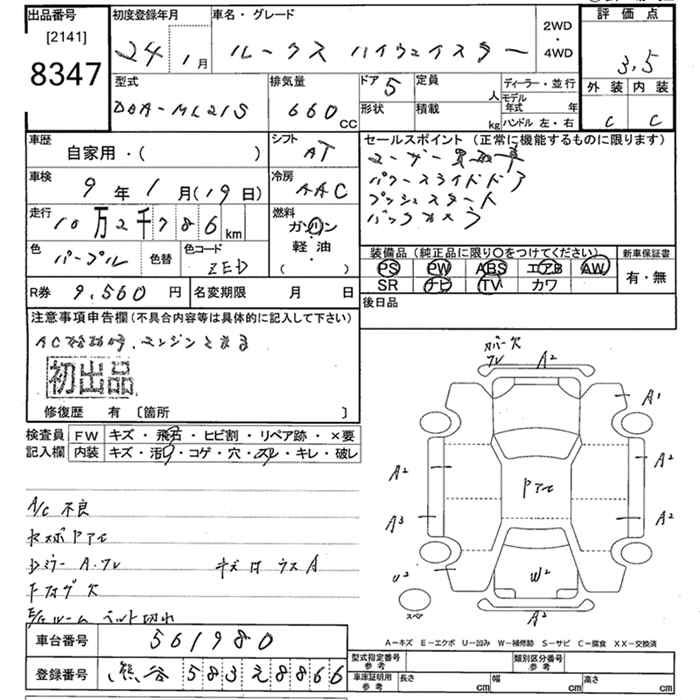 出品番号 初度登録年月 車名・グレード 評価点
[2141] 8347
24 1月 ルークス ハイウェイスター 2WD・4WD 3.5
型式 排気量 ドア 5 定員 人 ディーラー・並行 外装 内装
DBA-ML21S 660 CC 形状 積載 kg モデル年式 年 ハンドル 左・右 C C
車歴 シフト セールスポイント (正常に機能するものに限ります)
自家用・( ) AT ユーザー買取車
車検 9年1月(19日) 冷房 AAC パワースライドドア
プッシュスタート
走行 10万2千786km 燃料 ガソリン バックカメラ
軽油・( )
色 パープル 色替 色コード ZED
装備品 (純正品に限り○をつけてください) 新車保証書
PS PW ABS エアB AW 有・無
SR ナビ TV カワ
R券 9,560円 名変期限 月 日 後日品
注意事項申告欄 (不具合内容等は具体的に記入して下さい)
初出品
修復歴 有 [箇所 ]
検査員 FW キズ・飛石・ヒビ割・リペア跡・×要
記入欄 内装 キズ・汚れ・コゲ・穴・スレ・キレ・破レ
カバー欠
ワレ A2
A1
A2 A2
Pアセ
A3 A2
U2 W2
スペア A2
A/C 不良
セスボPアセ
Dミラー A.ワレ キズ有 ウスA
Fフォグ欠
ルーム ベルト切れ
A=キズ E=エクボ U=凹み W=補修跡 S=サビ C=腐食 XX=交換済
車台番号 561980
登録番号 熊谷 583 え 8866
型式指定番号 参考 類別区分番号 参考
車庫証明用 参考 長さ cm 幅 cm 高さ cm